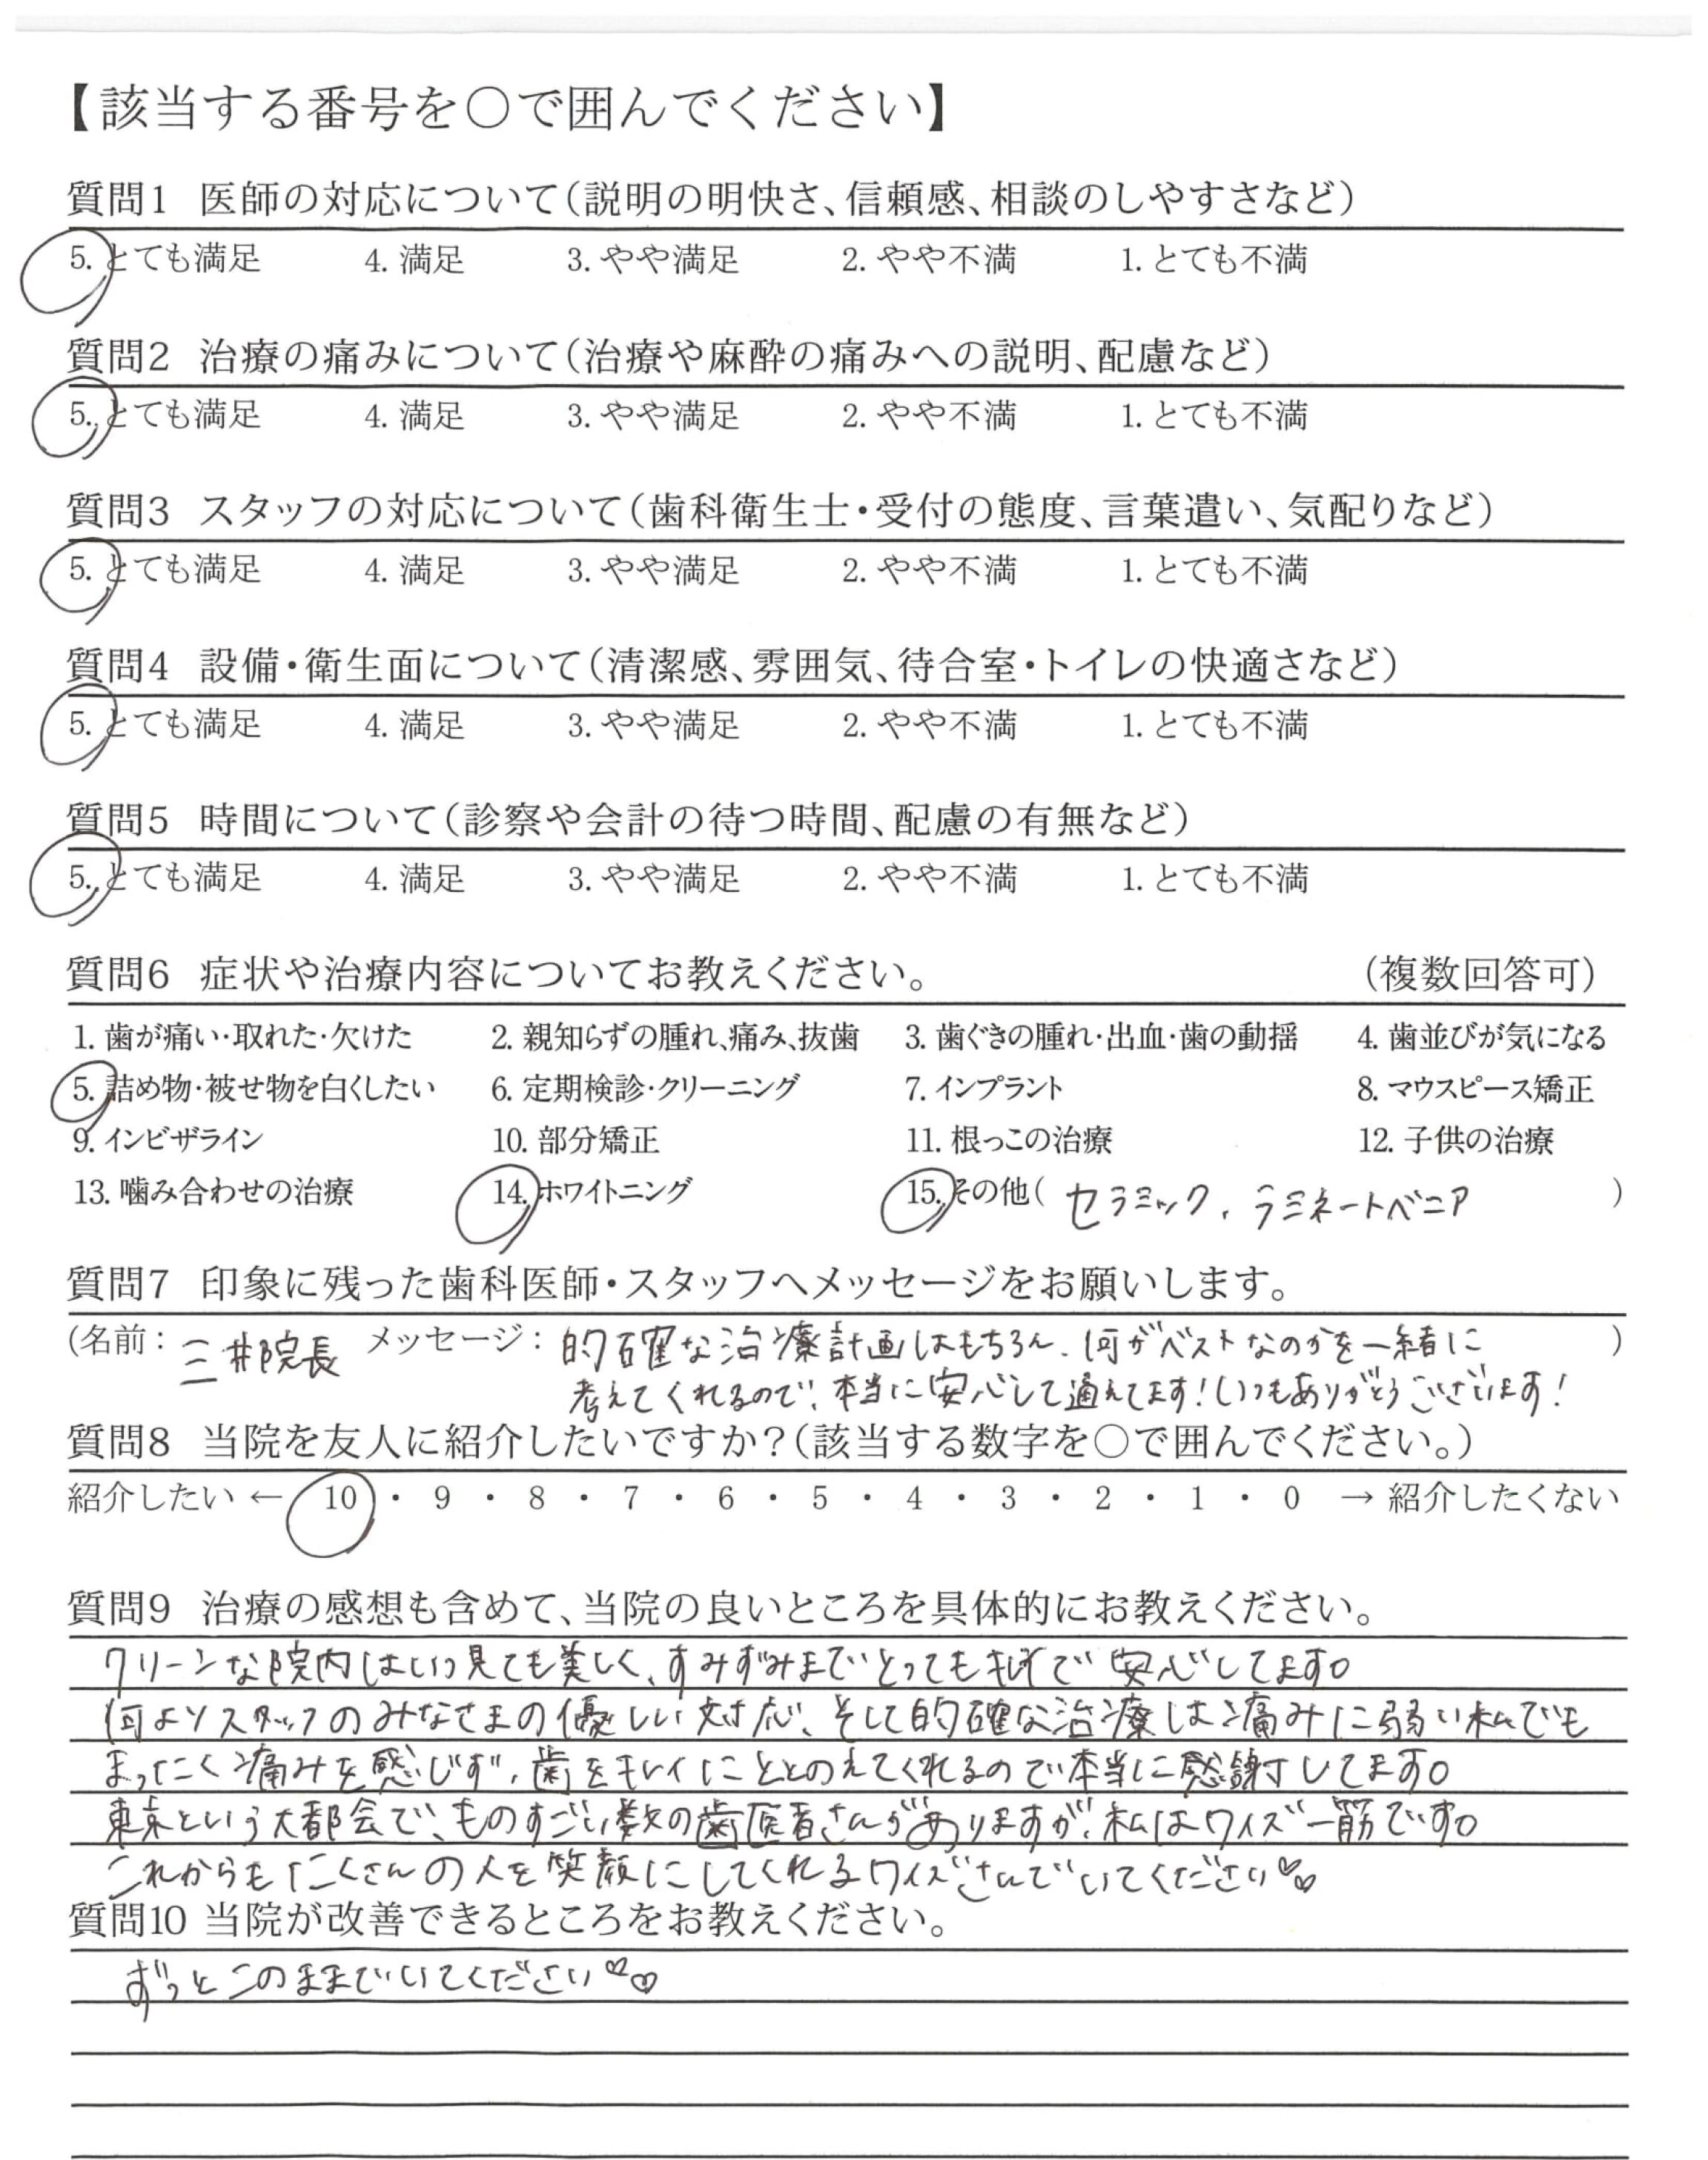 【該当する番号を○で囲んでください】
質問1 医師の対応について(説明の明快さ、信頼感、相談のしやすさなど)
5. とても満足 4. 満足 3. やや満足 2. やや不満 1. とても不満
質問2 治療の痛みについて(治療や麻酔の痛みへの説明、配慮など)
5. とても満足 4. 満足 3. やや満足 2. やや不満 1. とても不満
質問3 スタッフの対応について(歯科衛生士・受付の態度、言葉遣い、気配りなど)
5. とても満足 4. 満足 3. やや満足 2. やや不満 1. とても不満
質問4 設備・衛生面について(清潔感、雰囲気、待合室・トイレの快適さなど)
5. とても満足 4. 満足 3. やや満足 2. やや不満 1. とても不満
質問5 時間について(診察や会計の待つ時間、配慮の有無など)
5. とても満足 4. 満足 3. やや満足 2. やや不満 1. とても不満
質問6 症状や治療内容についてお教えください。 (複数回答可)
1. 歯が痛い・取れた・欠けた 2. 親知らずの腫れ、痛み、抜歯 3. 歯ぐきの腫れ・出血・歯の動揺 4. 歯並びが気になる
5. 詰め物・被せ物を白くしたい 6. 定期検診・クリーニング 7. インプラント 8. マウスピース矯正
9. インビザライン 10. 部分矯正 11. 根っこの治療 12. 子供の治療
13. 噛み合わせの治療 14. ホワイトニング 15. その他( セラミック、ラミネートベニア )
質問7 印象に残った歯科医師・スタッフへメッセージをお願いします。
(名前: 三井院長 メッセージ: 的確な治療計画はもちろん、何がベストなのかを一緒に )
考えてくれるので、本当に安心して通えてます!いつもありがとうございます!
質問8 当院を友人に紹介したいですか?(該当する数字を○で囲んでください。)
紹介したい ← 10 ・ 9 ・ 8 ・ 7 ・ 6 ・ 5 ・ 4 ・ 3 ・ 2 ・ 1 ・ 0 → 紹介したくない
質問9 治療の感想も含めて、当院の良いところを具体的にお教えください。
クリーンな院内はいつ見ても美しく、すみずみまでとってもキレイで安心してます。
何よりスタッフのみなさまの優しい対応、そして的確な治療は痛みに弱い私でも
まったく痛みを感じず、歯をキレイにととのえてくれるので本当に感謝してます。
東京という大都会で、ものすごい数の歯医者さんがありますが、私はワイズ一筋です。
これからもたくさんの人を笑顔にしてくれるワイズさんでいてください♡♡
質問10 当院が改善できるところをお教えください。
ずっとこのままでいてください♡♡